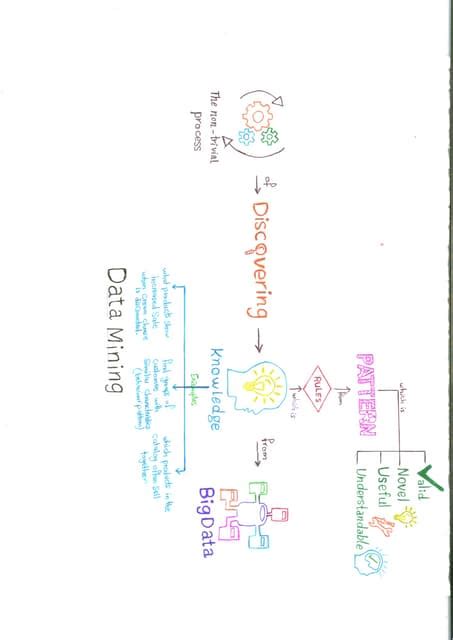 Valid
Novel
Useful
Understandable
which is
PATTERN
from
RULES
which is
The non-trivial
process
of
Discovering
Knowledge
From
BigData
Examples
what products show
increased Sale
when cream cheese
is discounted.
Find groups of
customers with
Similar characteristics
(behaviour pattern)
which products in the
catalog often sell
together.
Data Mining